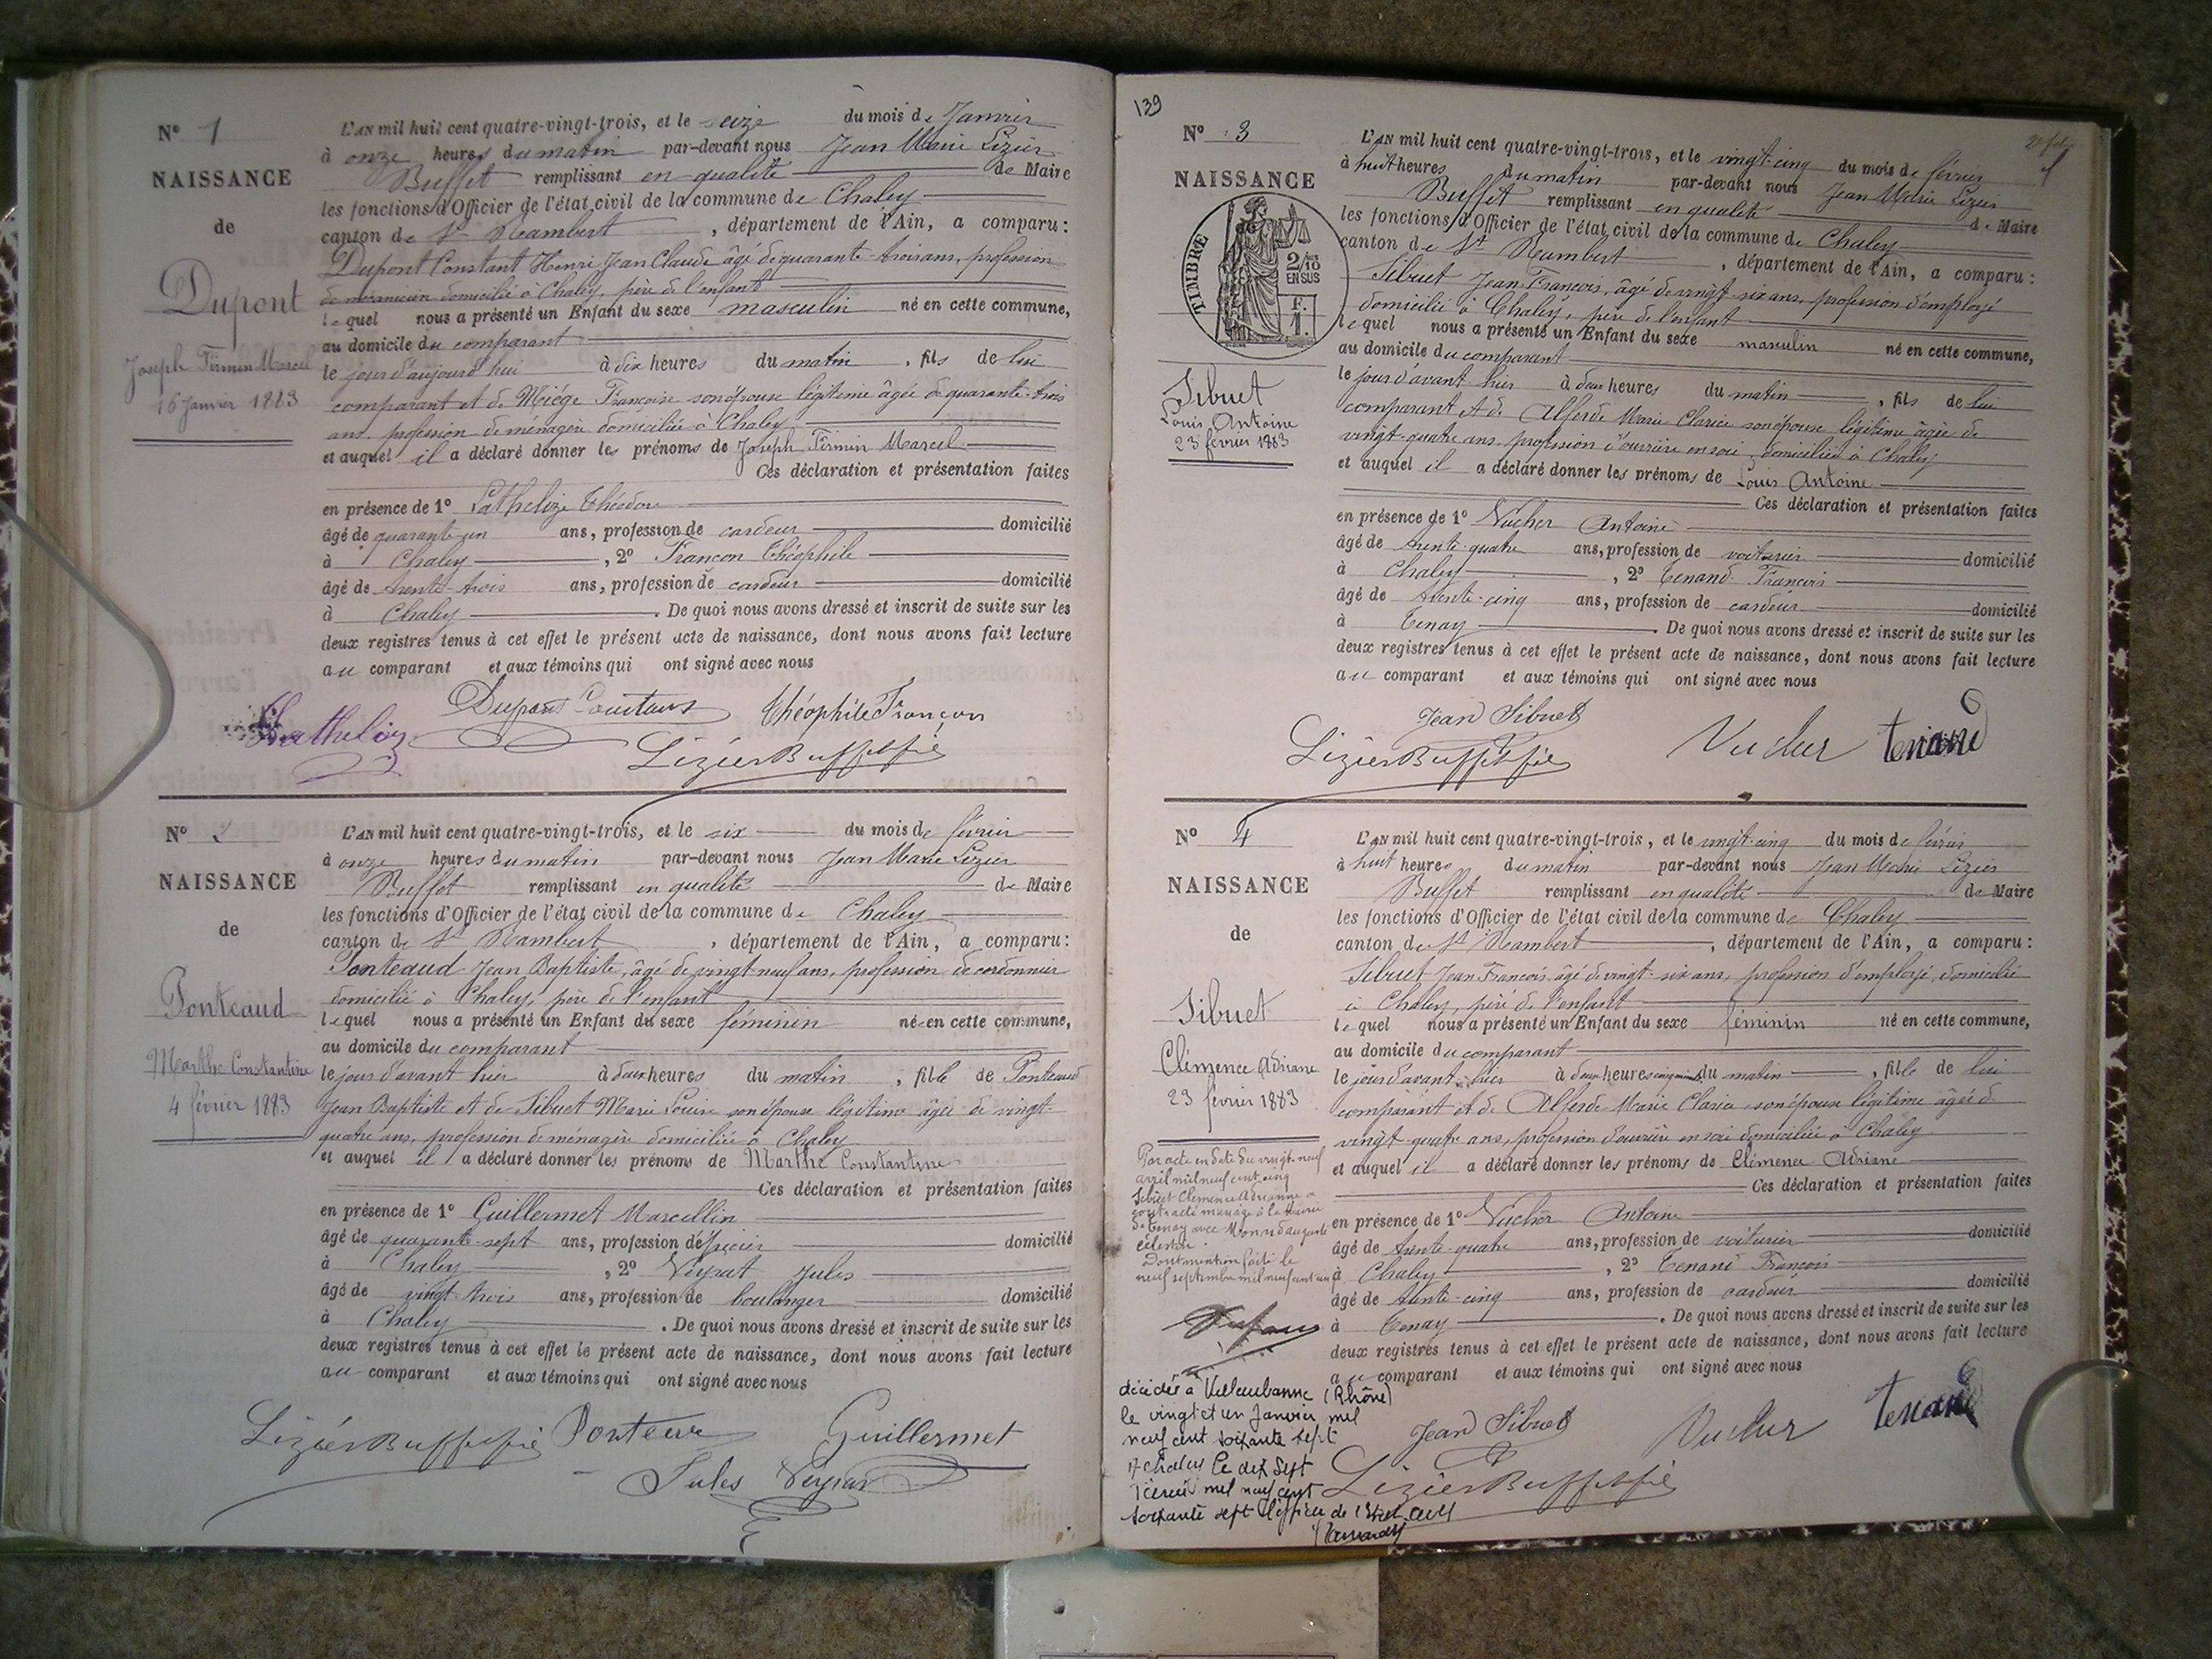 N° 1
NAISSANCE
de
Dupont
Joseph Firmin Marcel
16 Janvier 1883
L'AN mil huit cent quatre-vingt-trois, et le seize du mois de Janvier
à onze heures du matin par-devant nous Jean Marie Lizier
Buffet remplissant en qualité de Maire
les fonctions d'Officier de l'état civil de la commune de Chaley
canton de St Rambert, département de l'Ain, a comparu :
Dupont Constant Henri Jean Claude âgé de quarante-trois ans, profession
de mécanicien domicilié à Chaley, père de l'enfant
lequel nous a présenté un Enfant du sexe masculin né en cette commune,
au domicile du comparant
le jour d'aujourd'hui à dix heures du matin, fils de lui
comparant et de Miége Françoise son épouse légitime âgée de quarante-trois
ans, profession de ménagère domiciliée à Chaley
et auquel il a déclaré donner les prénoms de Joseph Firmin Marcel
Ces déclaration et présentation faites
en présence de 1° Lathelize Théodore
âgé de quarante-un ans, profession de cardeur domicilié
à Chaley, 2° Françon Théophile
âgé de trente-trois ans, profession de cardeur domicilié
à Chaley. De quoi nous avons dressé et inscrit de suite sur les
deux registres tenus à cet effet le présent acte de naissance, dont nous avons fait lecture
au comparant et aux témoins qui ont signé avec nous
Dupont Constant Théophile Françon
Lizier Buffet
N° 2
NAISSANCE
de
Ponteaud
Marthe Constantine
4 février 1883
L'AN mil huit cent quatre-vingt-trois, et le six du mois de février
à onze heures du matin par-devant nous Jean Marie Lizier
Buffet remplissant en qualité de Maire
les fonctions d'Officier de l'état civil de la commune de Chaley
canton de St Rambert, département de l'Ain, a comparu :
Ponteaud Jean Baptiste, âgé de vingt-neuf ans, profession de cordonnier
domicilié à Chaley, père de l'enfant
lequel nous a présenté un Enfant du sexe féminin née en cette commune,
au domicile du comparant
le jour d'avant hier à deux heures du matin, fille de Ponteaud
Jean Baptiste et de Sibuet Marie Louise son épouse légitime âgée de vingt-
quatre ans, profession de ménagère domiciliée à Chaley
et auquel il a déclaré donner les prénoms de Marthe Constantine
Ces déclaration et présentation faites
en présence de 1° Guillermet Marcellin
âgé de quarante-sept ans, profession d'épicier domicilié
à Chaley, 2° Veyrat Jules
âgé de vingt-trois ans, profession de boulanger domicilié
à Chaley. De quoi nous avons dressé et inscrit de suite sur les
deux registres tenus à cet effet le présent acte de naissance, dont nous avons fait lecture
au comparant et aux témoins qui ont signé avec nous
Lizier Buffet Guillermet
Jules Veyrat
139
N° 3
NAISSANCE
TIMBRE
2/10
EN SUS
F.
1.
Sibuet
Louis Antoine
23 février 1883
L'AN mil huit cent quatre-vingt-trois, et le vingt-cinq du mois de février
à huit heures du matin par-devant nous Jean Marie Lizier
Buffet remplissant en qualité de Maire
les fonctions d'Officier de l'état civil de la commune de Chaley
canton de St Rambert, département de l'Ain, a comparu :
Sibuet Jean François, âgé de vingt-six ans, profession d'employé
domicilié à Chaley, père de l'enfant
lequel nous a présenté un Enfant du sexe masculin né en cette commune,
au domicile du comparant
le jour d'avant hier à deux heures du matin, fils de lui
comparant et de Alferde Marie Clarice son épouse légitime âgée de
vingt-quatre ans, profession d'ouvrière en soie, domiciliée à Chaley
et auquel il a déclaré donner les prénoms de Louis Antoine
Ces déclaration et présentation faites
en présence de 1° Vucher Antoine
âgé de trente-quatre ans, profession de voiturier domicilié
à Chaley, 2° Tenand François
âgé de trente-cinq ans, profession de cardeur domicilié
à Tenay. De quoi nous avons dressé et inscrit de suite sur les
deux registres tenus à cet effet le présent acte de naissance, dont nous avons fait lecture
au comparant et aux témoins qui ont signé avec nous
Jean Sibuet
Lizier Buffet Vucher Tenand
N° 4
NAISSANCE
de
Sibuet
Clémence Adriane
23 février 1883
L'AN mil huit cent quatre-vingt-trois, et le vingt-cinq du mois de février
à huit heures du matin par-devant nous Jean Marie Lizier
Buffet remplissant en qualité de Maire
les fonctions d'Officier de l'état civil de la commune de Chaley
canton de St Rambert, département de l'Ain, a comparu :
Sibuet Jean François âgé de vingt-six ans, profession d'employé, domicilié
à Chaley, père de l'enfant
lequel nous a présenté un Enfant du sexe féminin né en cette commune,
au domicile du comparant
le jour d'avant-hier à deux heures du matin, fille de lui
comparant et de Alferde Marie Clarice son épouse légitime âgée de
vingt-quatre ans, profession d'ouvrière en soie domiciliée à Chaley
et auquel il a déclaré donner les prénoms de Clémence Adriane
Ces déclaration et présentation faites
en présence de 1° Vucher Antoine
âgé de trente-quatre ans, profession de voiturier domicilié
à Chaley, 2° Tenand François
âgé de trente-cinq ans, profession de cardeur domicilié
à Tenay. De quoi nous avons dressé et inscrit de suite sur les
deux registres tenus à cet effet le présent acte de naissance, dont nous avons fait lecture
au comparant et aux témoins qui ont signé avec nous
Jean Sibuet Vucher Tenand
Lizier Buffet
Par acte en date du vingt-neuf
avril mil neuf cent cinq
Sibuet Clémence Adrianne a
contracté mariage à la mairie
de Tenay avec
Célestin.
Dont mention faite le
neuf septembre mil neuf cent
décédée à Villeurbanne (Rhône)
le vingt et un Janvier mil
neuf cent soixante sept
A Chaley le dix sept
février mil neuf cent
soixante sept l'officier de l'état civil